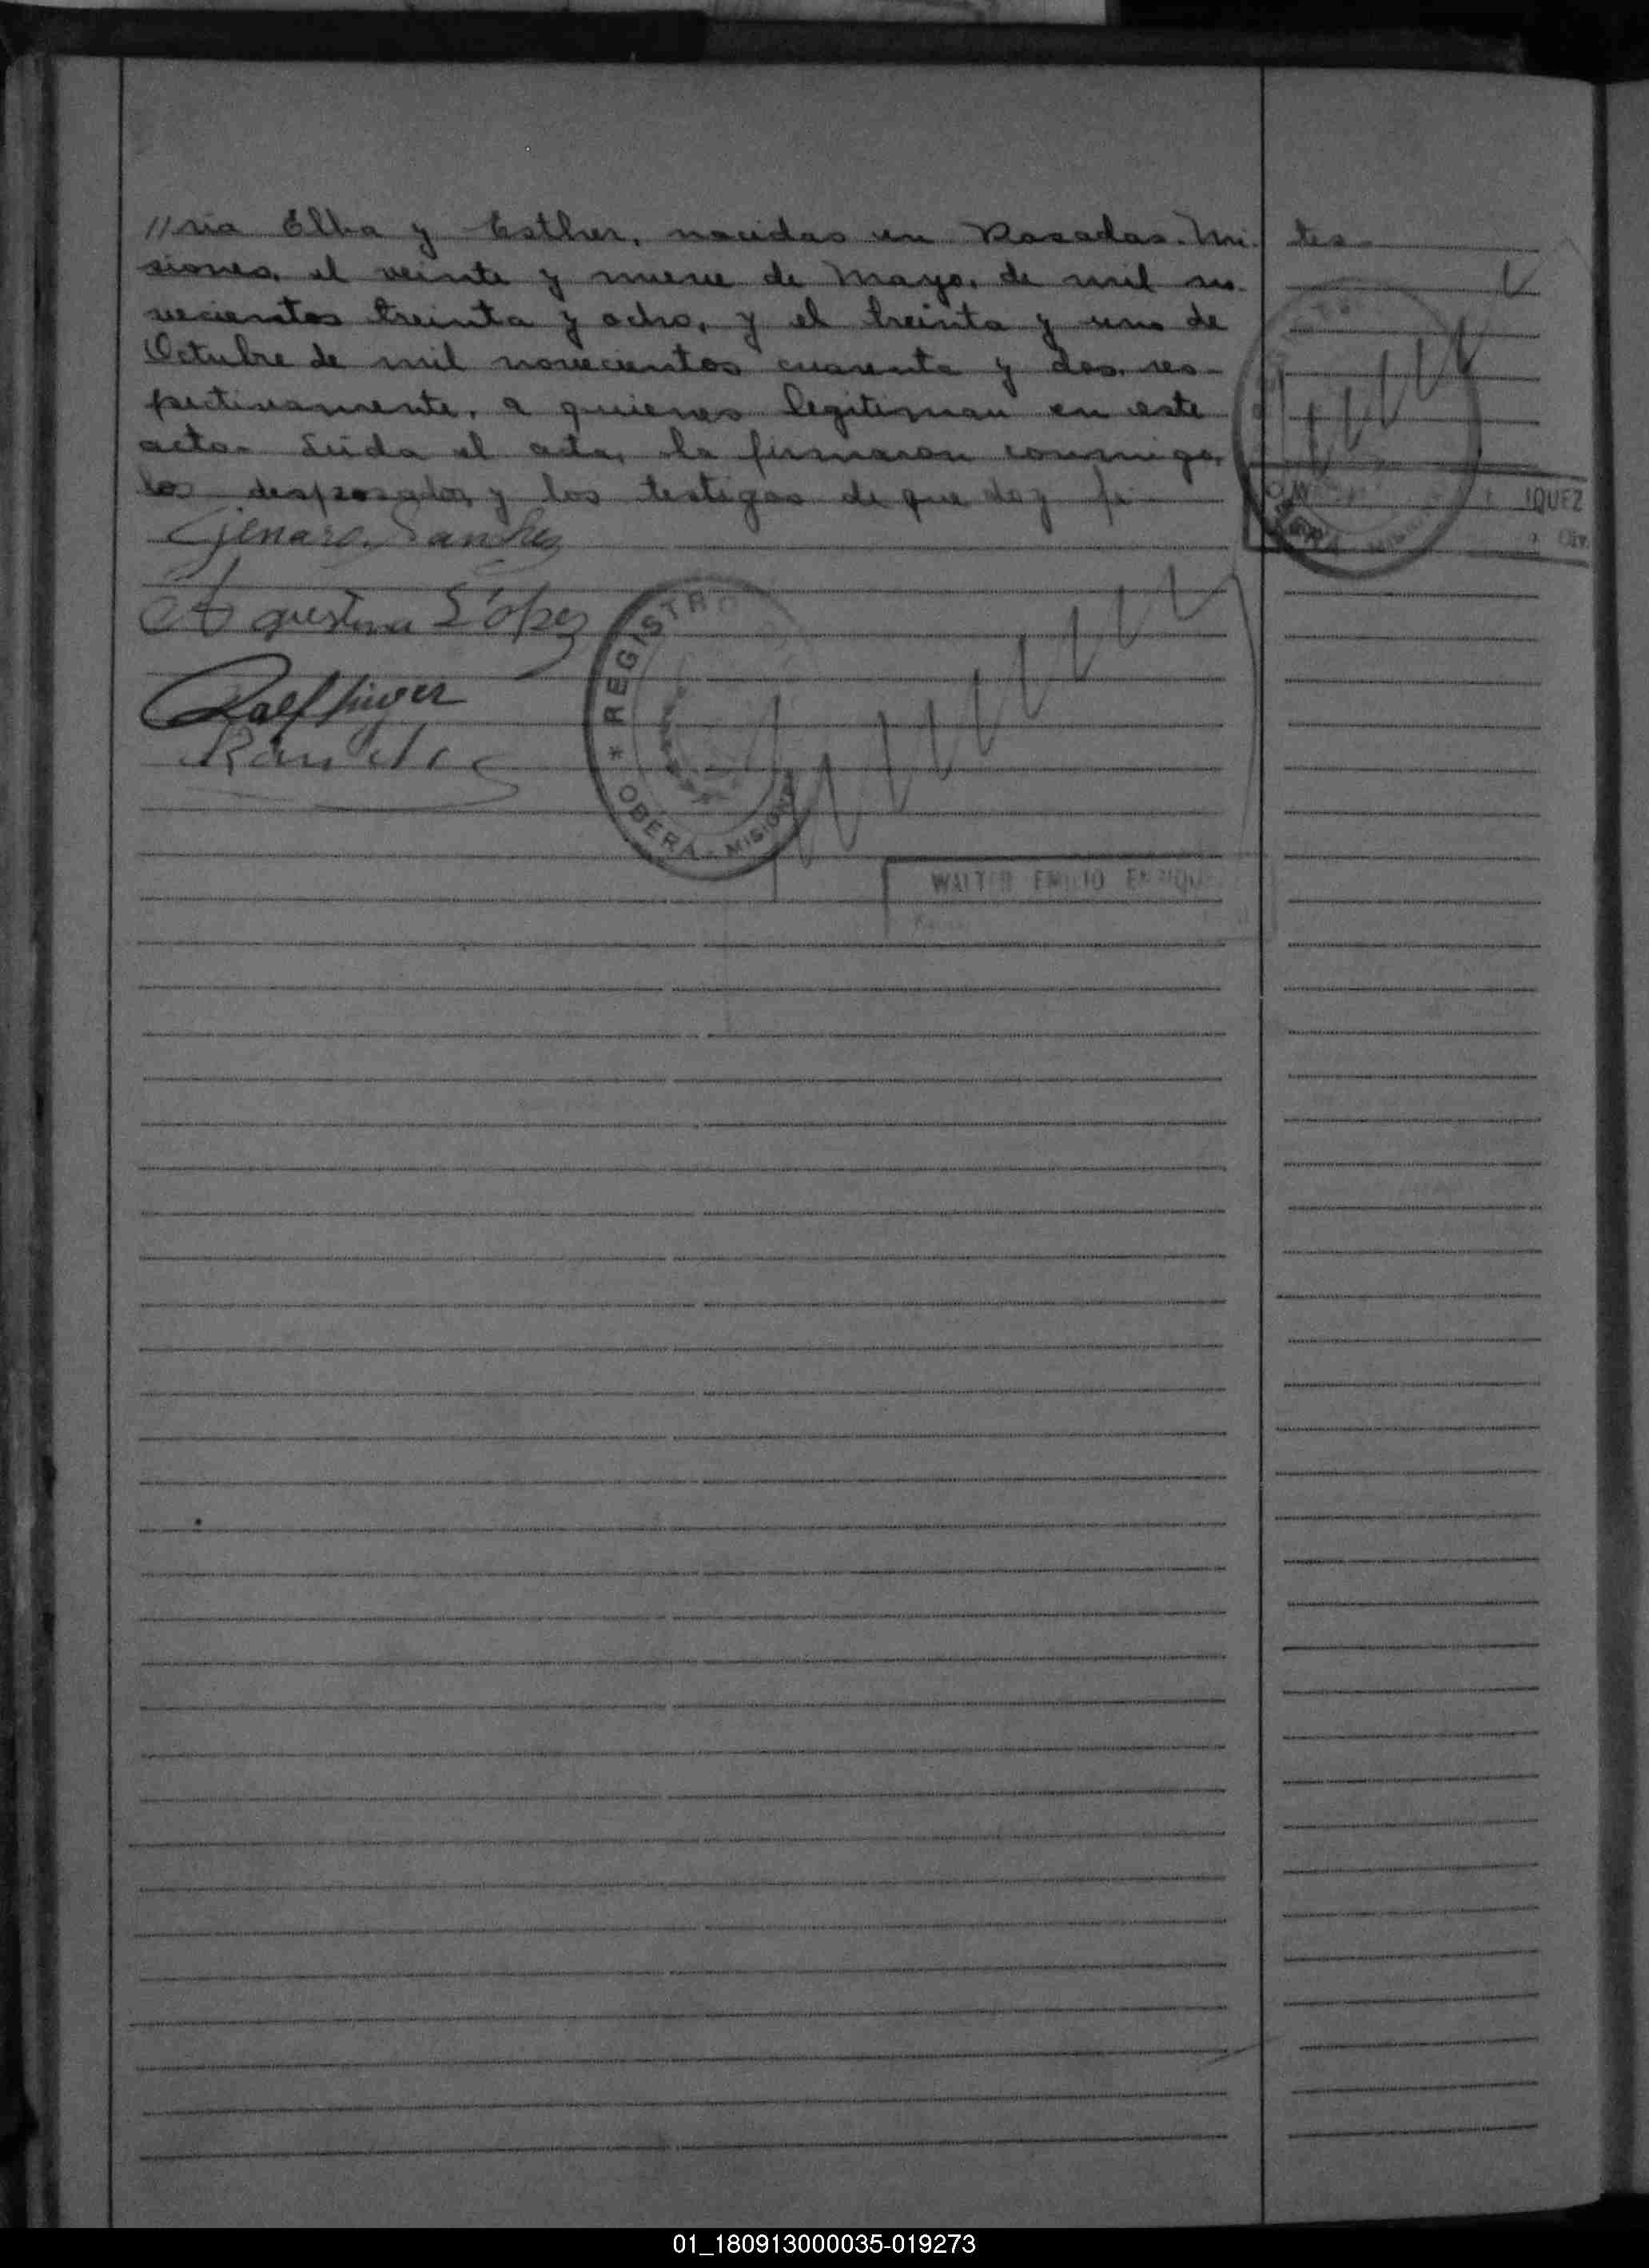 //ria Elba y Esther, nacidas en Posadas. Mi-
siones, el veinte y nueve de Mayo, de mil no-
vecientos treinta y ocho, y el treinta y uno de
Octubre de mil novecientos cuarenta y dos, res-
pectivamente, a quienes legitiman en este
acto. Leida el acta, la firmaron conmigo,
los desposados, y los testigos de que doy fe
Genaro Sanchez
Agustina López
tes
IQUEZ
Civ.
* REGISTRO
OBERÁ - MISIONES
WALTER EMILIO ENRIQU
01_180913000035-019273